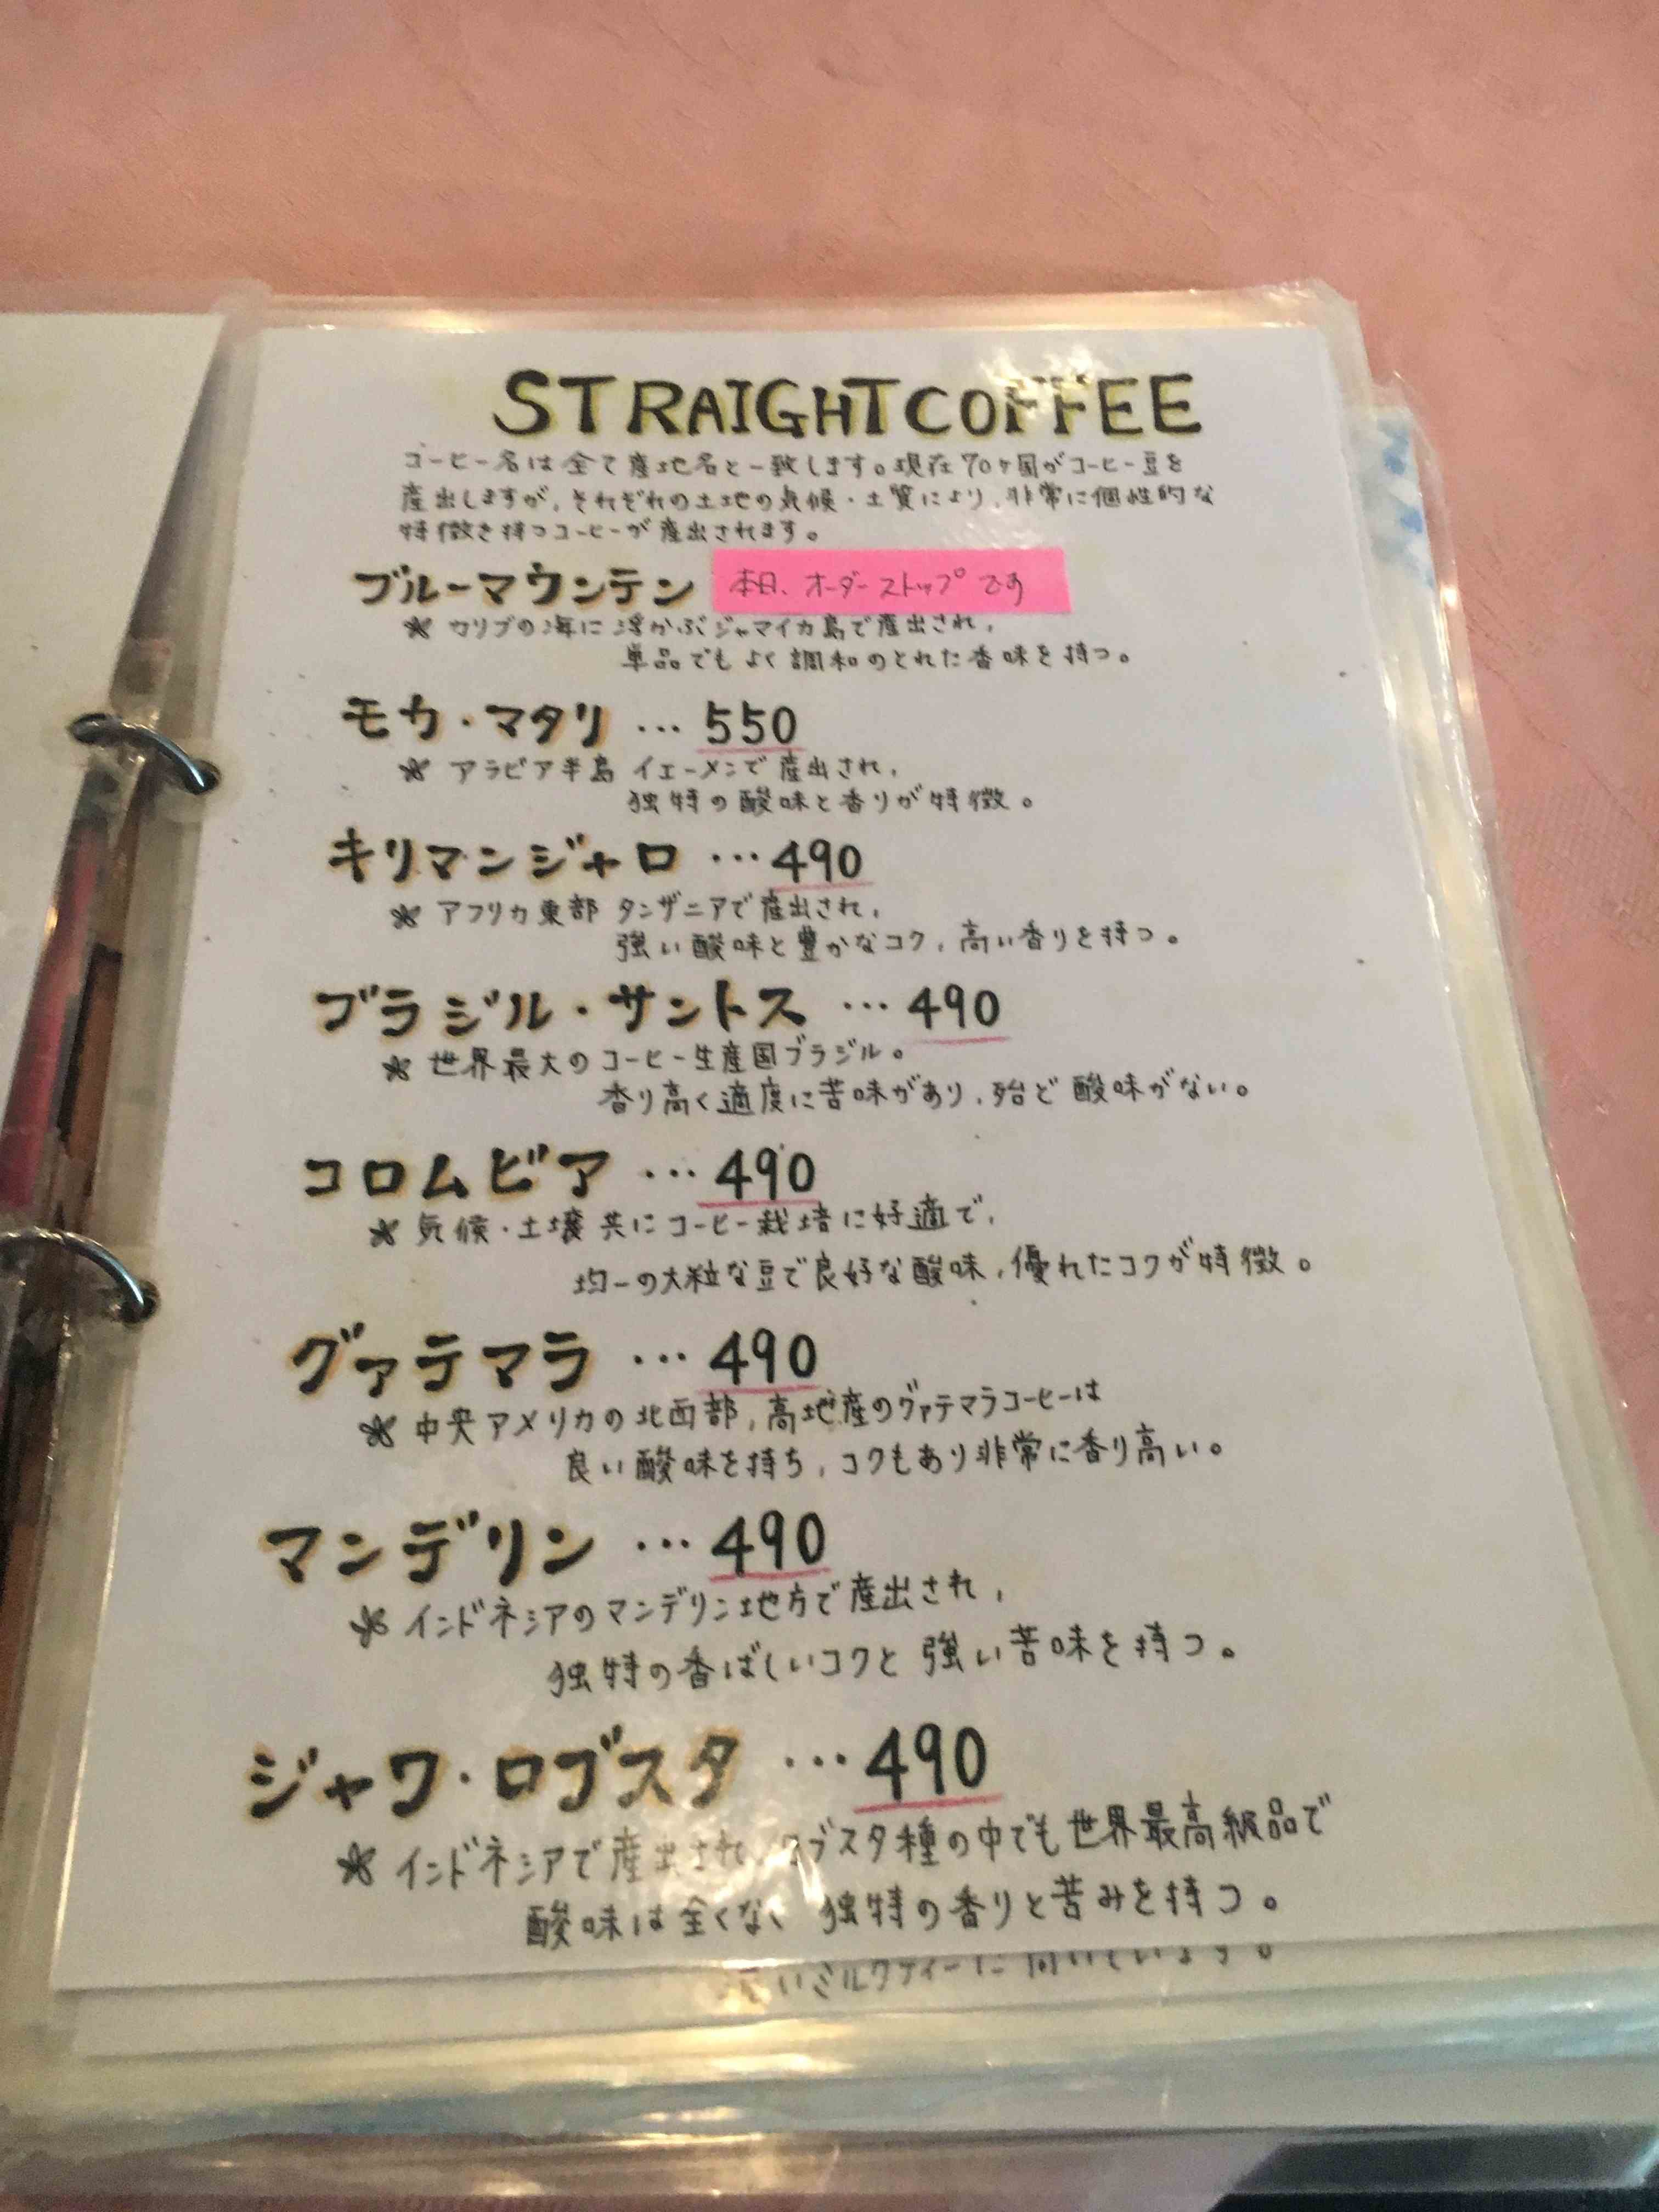 STRAIGHT COFFEE
コーヒー名は全て産地名と一致します。現在70ヶ国がコーヒー豆を
産出しますが、それぞれの土地の気候・土質により、非常に個性的な
特徴を持つコーヒーが産出されます。
ブルーマウンテン 本日、オーダーストップです
* カリブの海に浮かぶジャマイカ島で産出され、
単品でもよく調和のとれた香味を持つ。
モカ・マタリ … 550
* アラビア半島 イエーメンで産出され、
独特の酸味と香りが特徴。
キリマンジャロ … 490
* アフリカ東部 タンザニアで産出され、
強い酸味と豊かなコク、高い香りを持つ。
ブラジル・サントス … 490
* 世界最大のコーヒー生産国ブラジル。
香り高く適度に苦味があり、殆ど酸味がない。
コロムビア … 490
* 気候・土壌共にコーヒー栽培に好適で、
均一の大粒な豆で良好な酸味、優れたコクが特徴。
グァテマラ … 490
* 中央アメリカの北西部、高地産のグァテマラコーヒーは
良い酸味を持ち、コクもあり非常に香り高い。
マンデリン … 490
* インドネシアのマンデリン地方で産出され、
独特の香ばしいコクと強い苦味を持つ。
ジャワ・ロブスタ … 490
* インドネシアで産出され、ロブスタ種の中でも世界最高級品で
酸味は全くなく 独特の香りと苦みを持つ。
いミルクティーに向いています。